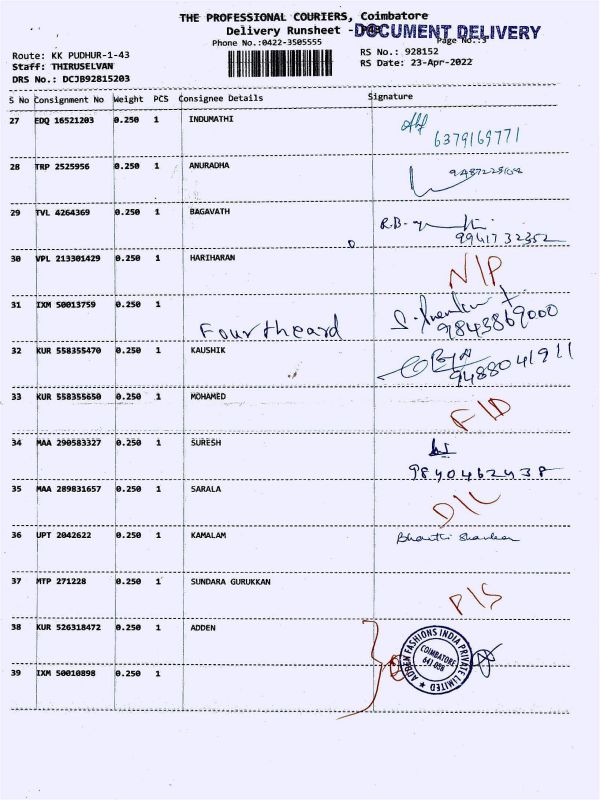 THE PROFESSIONAL COURIERS, Coimbatore
Delivery Runsheet - DOCUMENT DELIVERY
Phone No.:0422-3505555 Page No.:3
Route: KK PUDHUR-1-43 RS No.: 928152
Staff: THIRUSELVAN RS Date: 23-Apr-2022
DRS No.: DCJB92815203
S No Consignment No Weight PCS Consignee Details Signature
27 EDQ 16521203 0.250 1 INDUMATHI
6379169771
28 TRP 2525956 0.250 1 ANURADHA
29 TVL 4264369 0.250 1 BAGAVATH
R.B-
9941732352
30 VPL 213301429 0.250 1 HARIHARAN
N/P
31 IXM 50013759 0.250 1
Fourtheard 9843869000
32 KUR 558355470 0.250 1 KAUSHIK
9488041911
33 KUR 558355650 0.250 1 MOHAMED
34 MAA 290583327 0.250 1 SURESH
9840462438
35 MAA 289831657 0.250 1 SARALA
D/L
36 UPT 2042622 0.250 1 KAMALAM
37 MTP 271228 0.250 1 SUNDARA GURUKKAN
P/S
38 KUR 526318472 0.250 1 ADDEN
ADDEN FASHIONS INDIA PRIVATE LIMITED
COIMBATORE
39 IXM 50010898 0.250 1